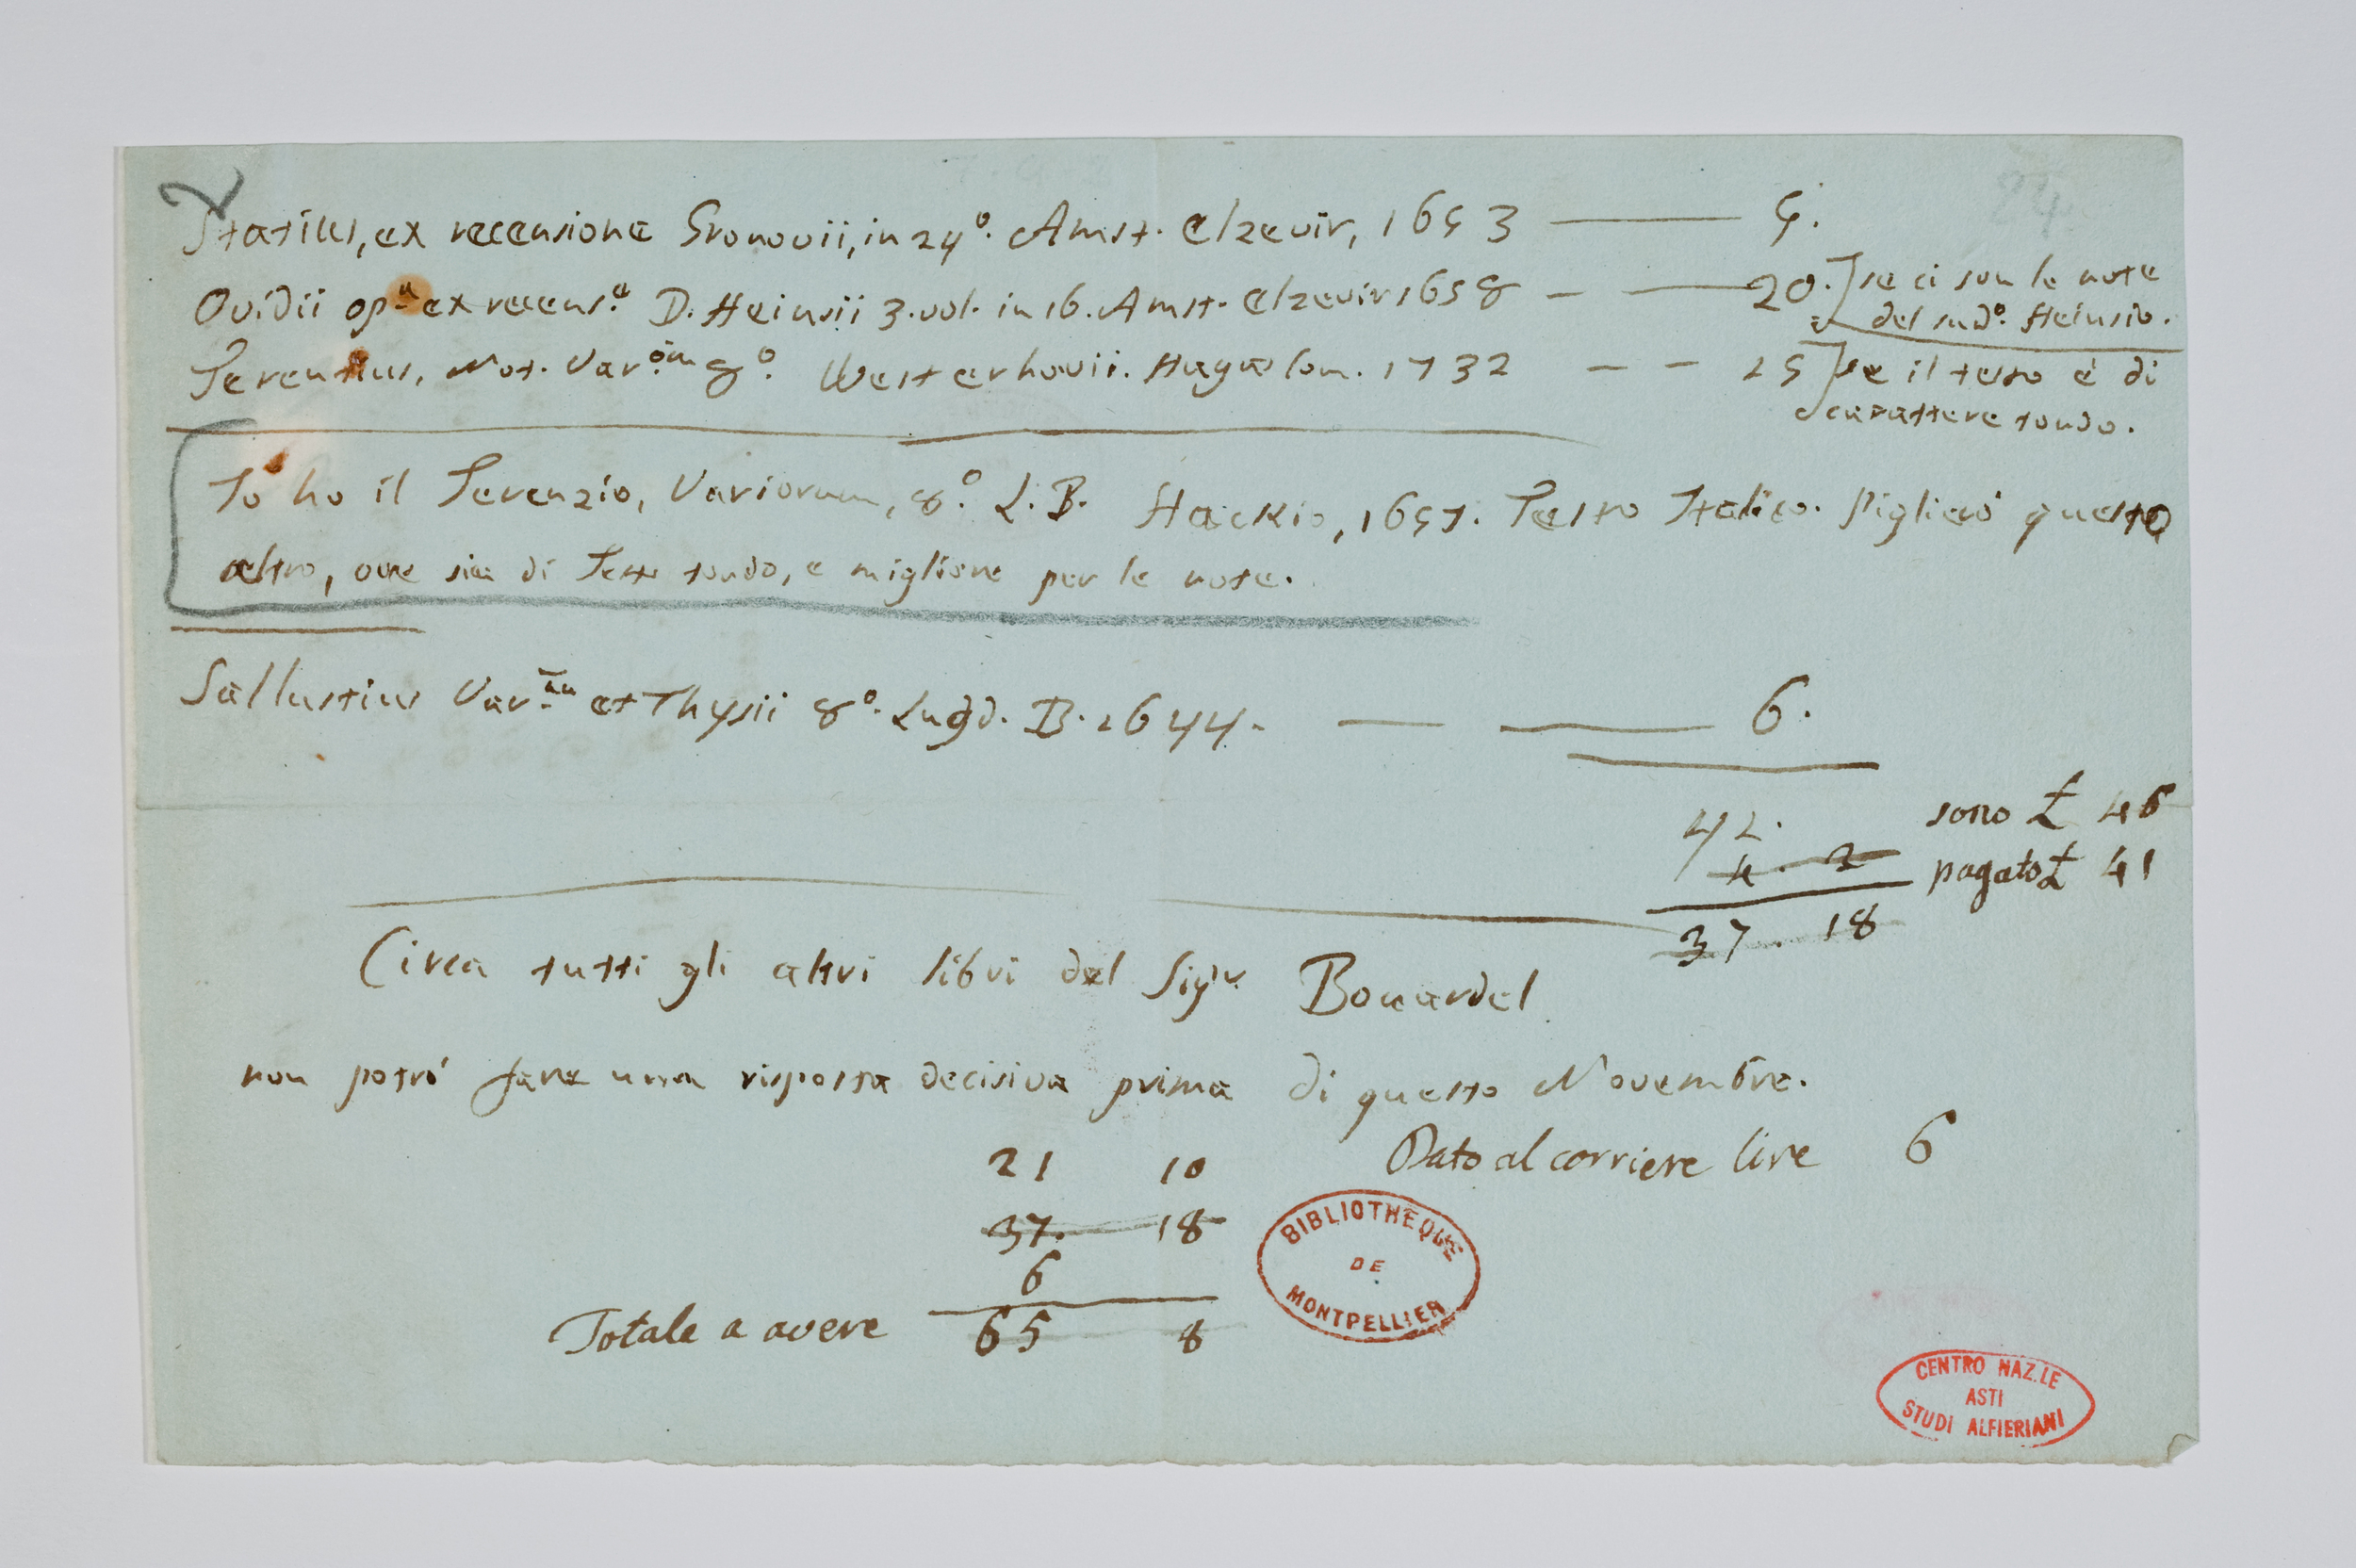 Statius, ex recensione Gronovii, in 24º. Amst. Elzevir, 1653 — 5.
Ovidii op.ª ex recens.e D. Heinsii 3. vol. in 16. Amst. Elzevir 1658 — — 20. ] se ci son le note
del sud.º Heinsio.
Terentius, Not. Var.um 8º. Westerhovii. Hagae Com. 1732 — — 15 ] se il testo è di
carattere tondo.
Io ho il Terenzio, Variorum, 8º. L. B. Hackio, 1657. Testo Italico. Piglierò questo
altro, ove sia di Testo tondo, e migliore per le note.
Sallustius Var.um et Thysii 8º. Lugd. B. 1644. — — 6.
42. sono £ 46
4. 2 pagato £ 41
37. 18
Circa tutti gli altri libri del Sig.r Bouardel
non potrò fare una risposta decisiva prima di questo Novembre.
21 10 Dato al corriere lire 6
37. 18
6
Totale a avere 65 8
BIBLIOTHEQUE
DE
MONTPELLIER
CENTRO NAZ.LE
ASTI
STUDI ALFIERIANI